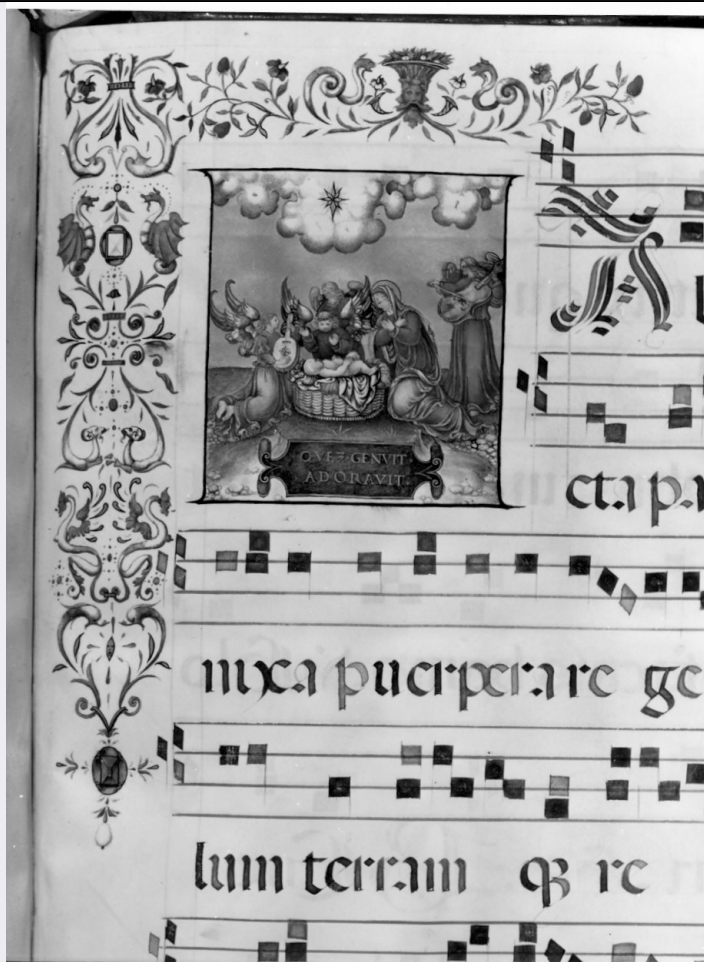 A
QVE⁼ GENVIT
ADORAVIT
cta pa
nixa puerpera re ge
lum terram qꝫ re